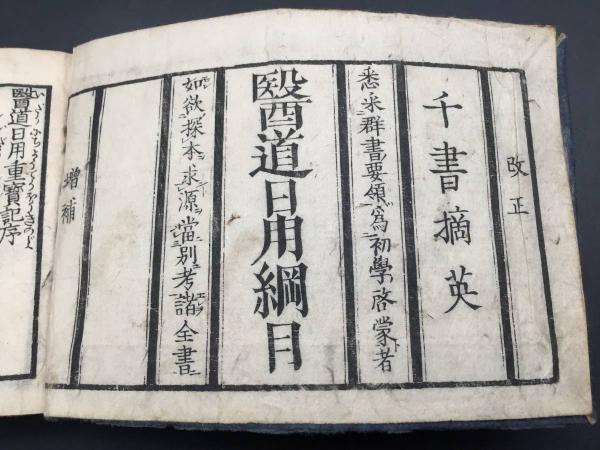 改正
千書摘英
悉采群書要領爲初學啓蒙者
醫道日用綱目
如欲探本求源當別考諸全書
増補
醫道日用重寶記序